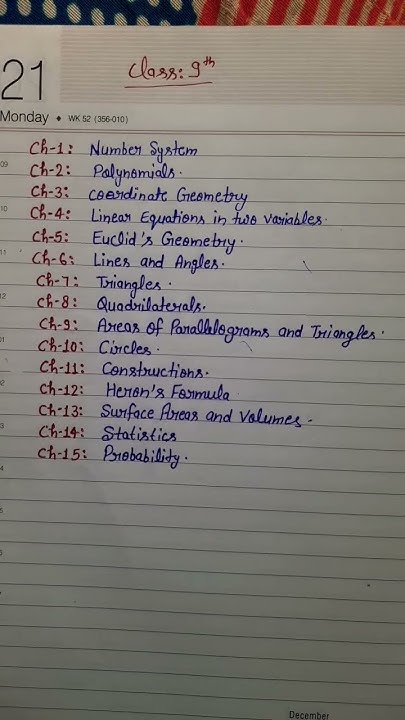 21
Class: 9th
Monday • WK 52 (356-010)
Ch-1: Number System
09
Ch-2: Polynomials.
Ch-3: Coordinate Geometry
10
Ch-4: Linear Equations in two variables.
Ch-5: Euclid's Geometry.
11
Ch-6: Lines and Angles.
Ch-7: Triangles.
12
Ch-8: Quadrilaterals.
Ch-9: Areas of Parallelograms and Triangles.
01
Ch-10: Circles.
Ch-11: Constructions.
02
Ch-12: Heron's Formula
Ch-13: Surface Areas and Volumes.
3
Ch-14: Statistics
Ch-15: Probability.
4
5
6
7
December